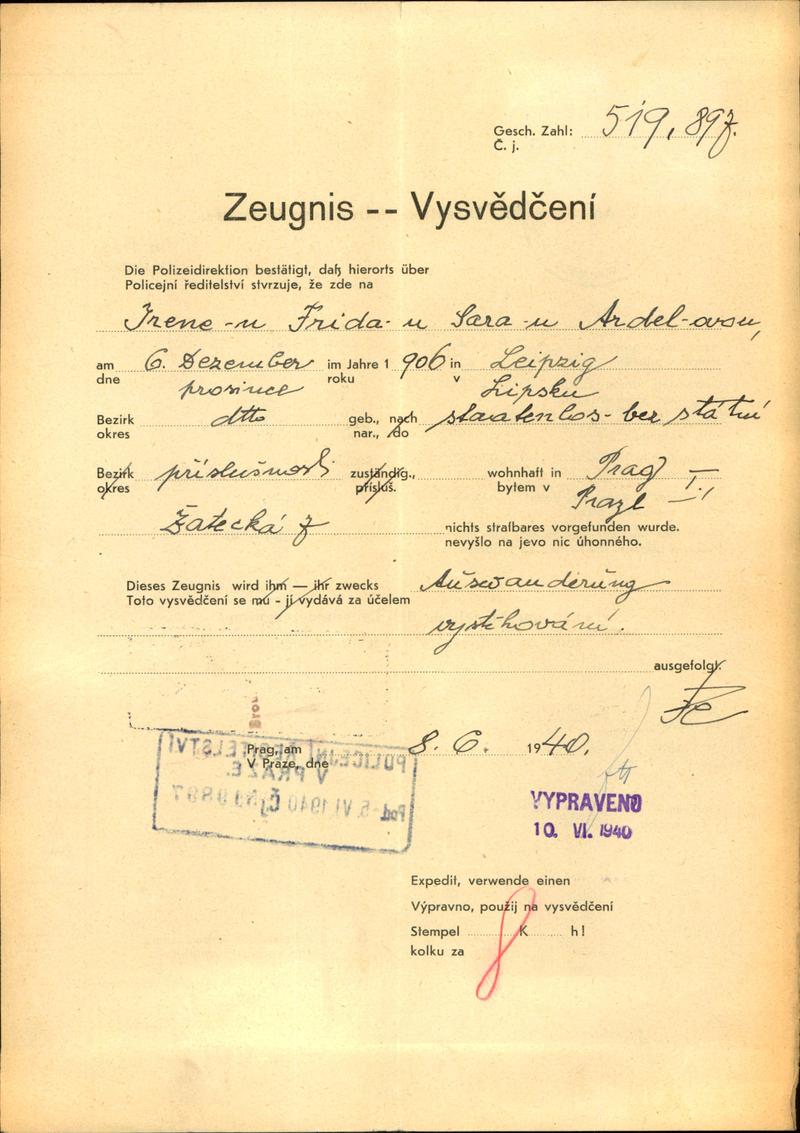 Gesch. Zahl: 519,897.
Č. j.
Zeugnis -- Vysvědčení
Die Polizeidirektion bestätigt, daß hierorts über
Policejní ředitelství stvrzuje, že zde na
Irene-u Frida-u Sara-u Ardel-ovou,
am 6. Dezember im Jahre 1906 in Leipzig
dne prosince roku v Lipsku
Bezirk dtto geb., nach staatenlos - bez státní
okres nar., do
Bezirk příslušnosti zuständig., wohnhaft in Prag I.,
okres přísluš. bytem v Praze
Žatecká 7 nichts strafbares vorgefunden wurde.
nevyšlo na jevo nic úhonného.
Dieses Zeugnis wird ihm — ihr zwecks Auswanderung
Toto vysvědčení se mu - jí vydává za účelem
vystěhování.
ausgefolgt.
Prag, am 8. 6. 1940.
V Praze, dne
POLICEJNÍ ŘEDITELSTVÍ
V PRAZE.
VYPRAVENO
10. VI. 1940
Expedit, verwende einen
Výpravno, použij na vysvědčení
Stempel 8 K h!
kolku za